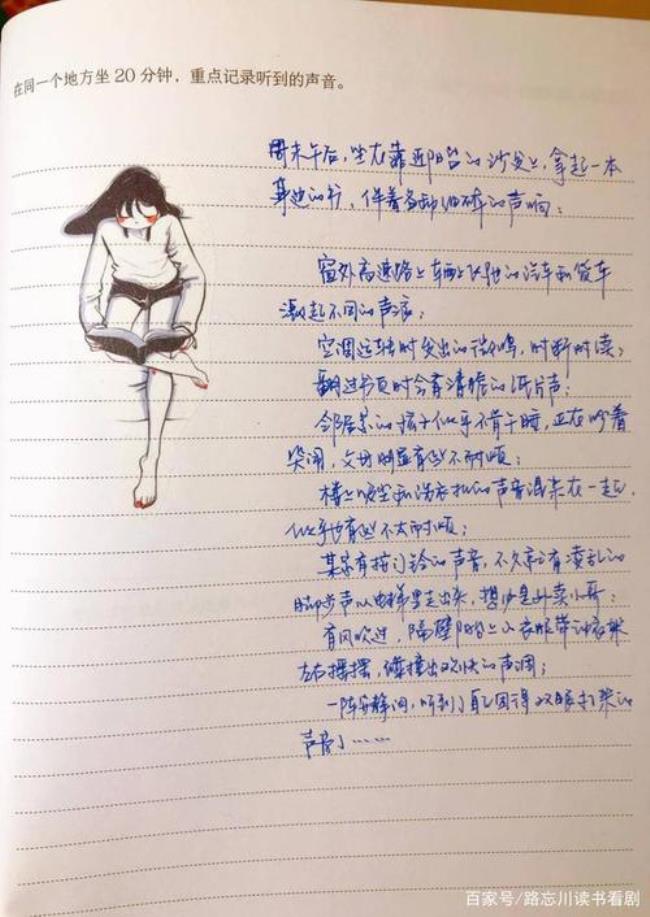 在同一个地方坐 20 分钟，重点记录听到的声音。
周末午后，坐在靠近阳台的沙发上，拿起一本
身边的书，伴着各种细碎的声响：
窗外高速路上车辆上飞驰的汽车和货车
激起不同的声浪；
空调运转时发出的微鸣，时断时续；
翻过书页时会有清脆的纸片声；
邻居家的孩子似乎不肯午睡，正在吵着
哭闹，父母明显有些不耐烦；
楼上吸尘和洗衣机的声音混杂在一起，
似乎也有些不太耐烦；
某家有按门铃的声音，不久就有凌乱的
脚步声从电梯里走出来，想必是外卖小哥；
有风吹过，隔壁阳台上的衣服带动衣架
左右摇摆，碰撞出欢快的声调；
一阵安静间，听到了自己困得双眼打架的
声音了……
百家号/路忘川读书看剧